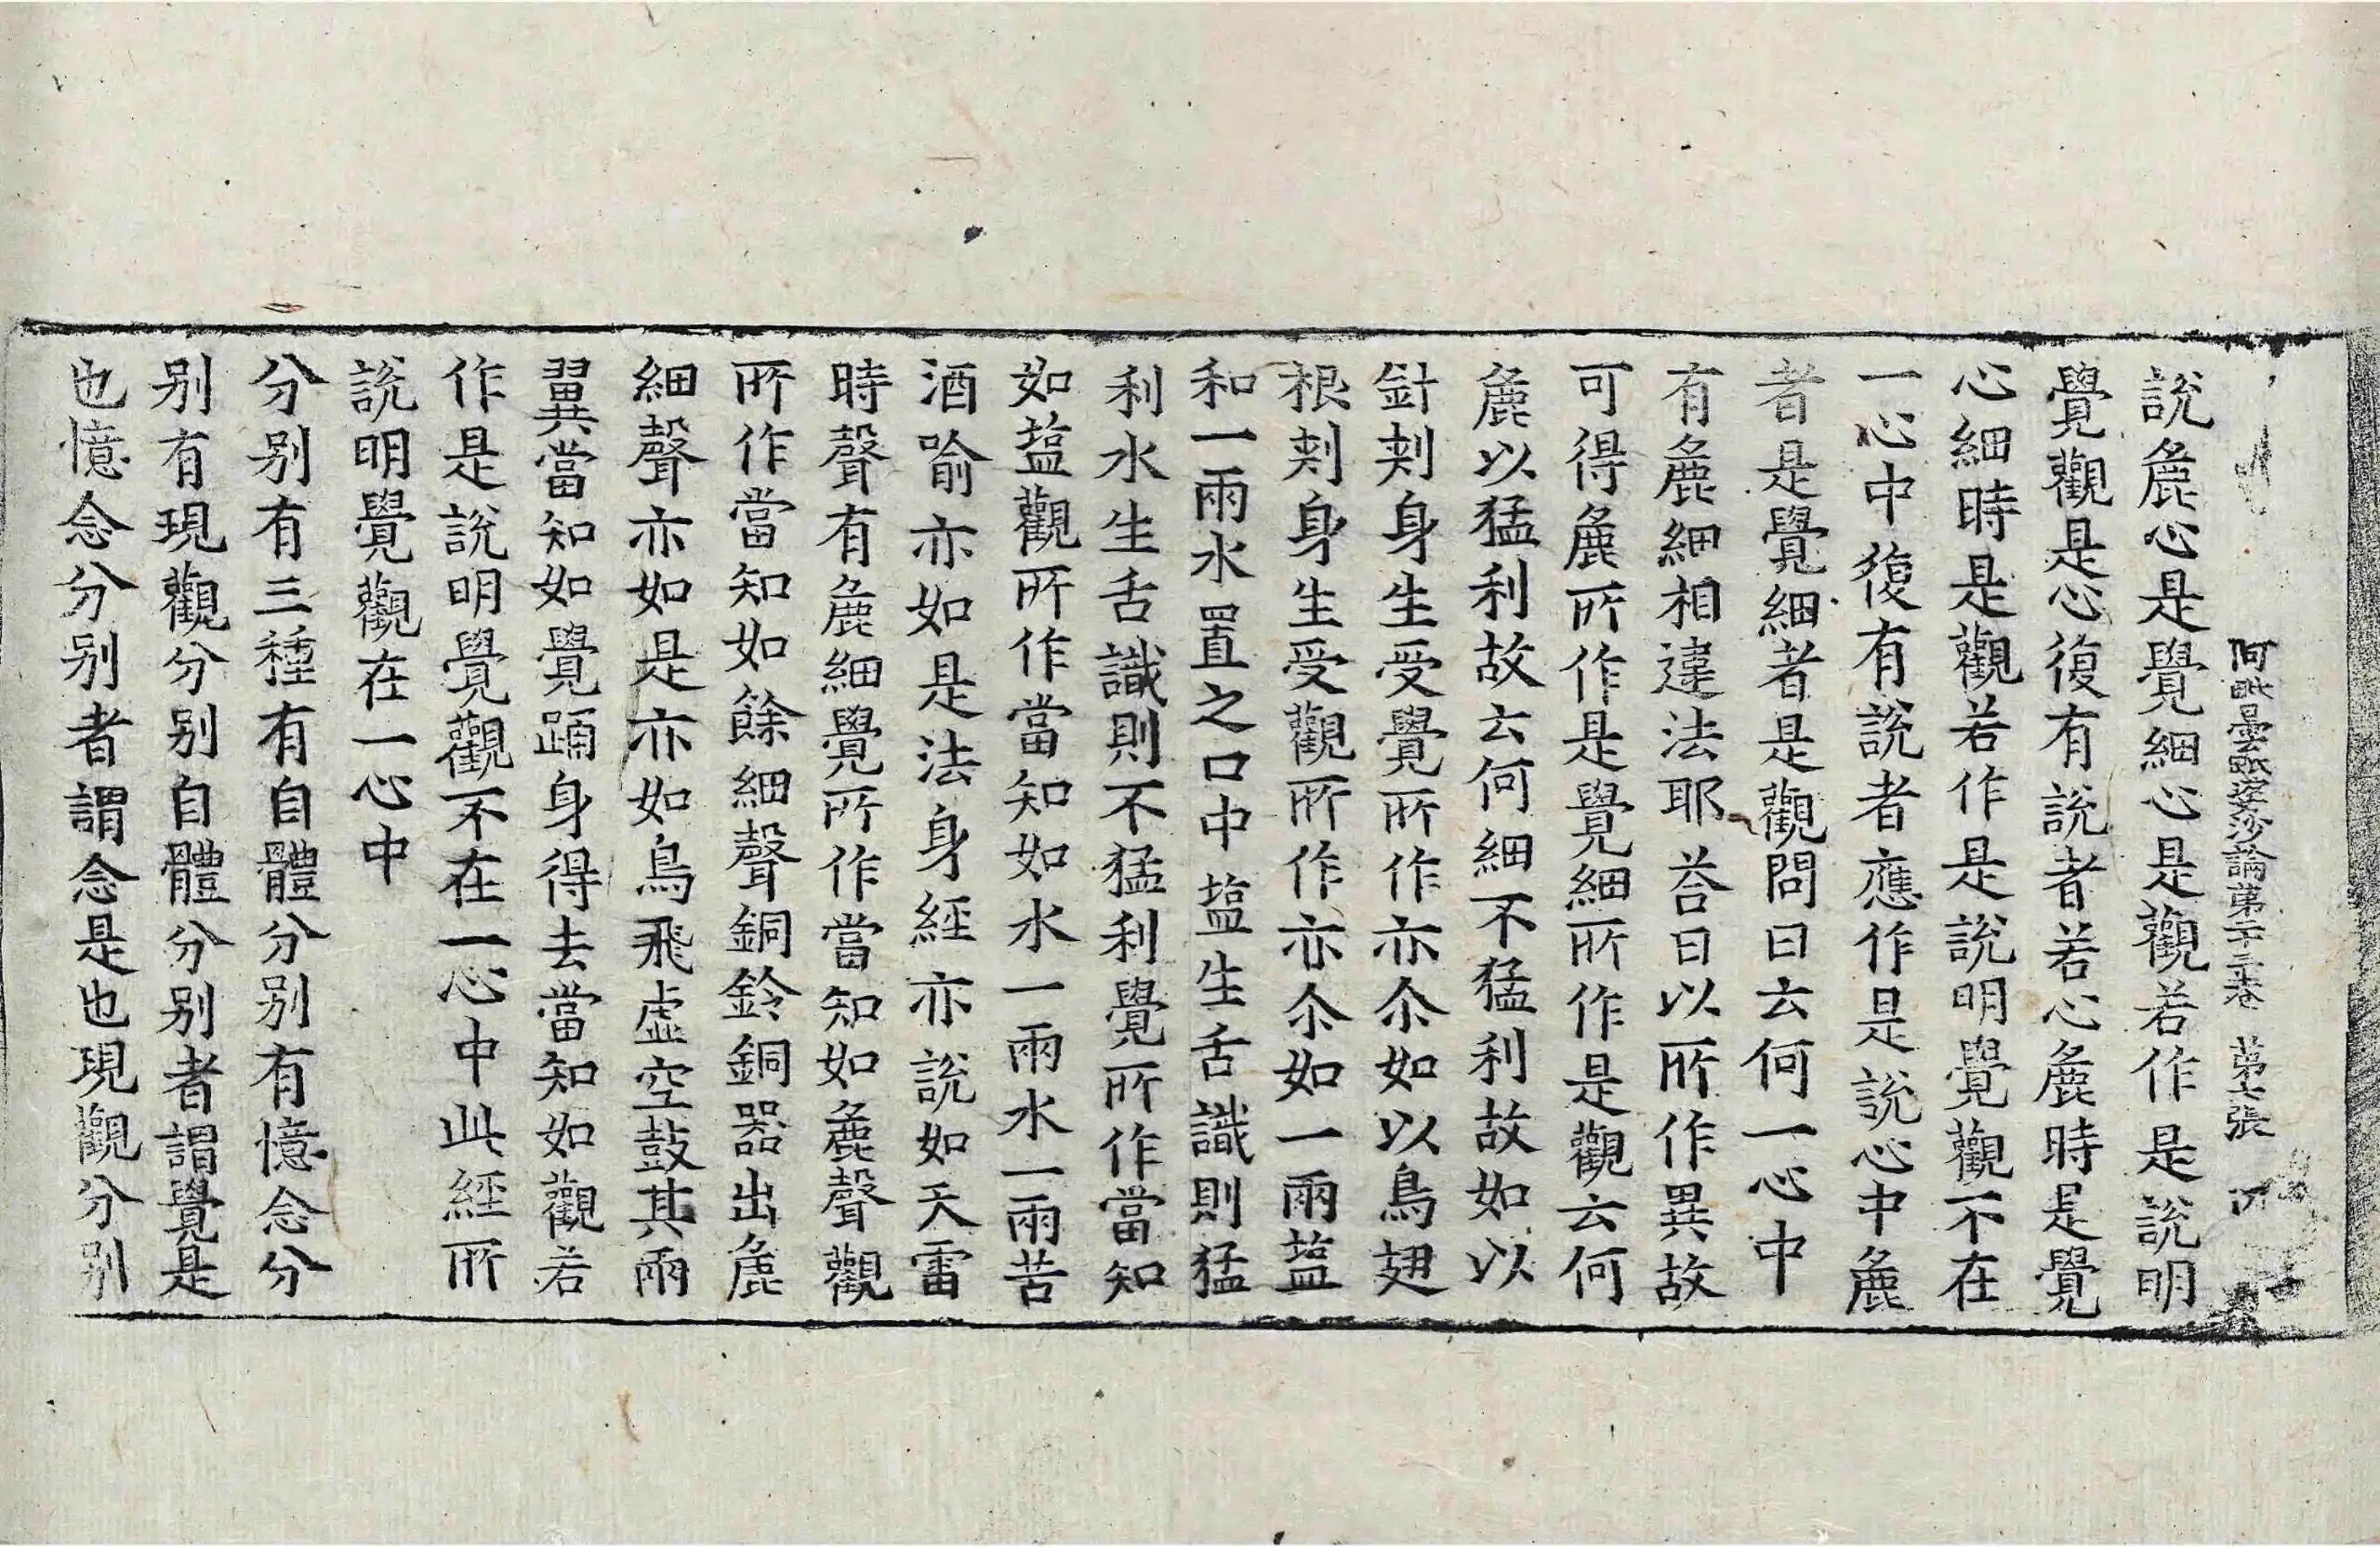 阿毗曇毗婆沙論第二十三卷 第七張
說麁心是覺細心是觀若作是說明
覺觀是心復有說者若心麁時是覺
心細時是觀若作是說明覺觀不在
一心中復有說者應作是說心中麁
者是覺細者是觀問曰云何一心中
有麁細相違法耶荅曰以所作異故
可得麁所作是覺細所作是觀云何
麁以猛利故云何細不猛利故如以
針刾身生受覺所作亦尒如以鳥翅
根刾身生受觀所作亦尒如一兩塩
和一兩水置之口中塩生舌識則猛
利水生舌識則不猛利覺所作當知
如塩觀所作當知如水一兩水一兩苦
酒喻亦如是法身經亦說如天雷
時聲有麁細覺所作當知如麁聲觀
所作當知如餘細聲銅鈴銅器出麁
細聲亦如是亦如鳥飛虛空鼓其兩
翼當知如覺踊身得去當知如觀若
作是說明覺觀不在一心中此經所
說明覺觀在一心中
分別有三種有自體分別有憶念分
別有現觀分別自體分別者謂覺是
也憶念分別者謂念是也現觀分別